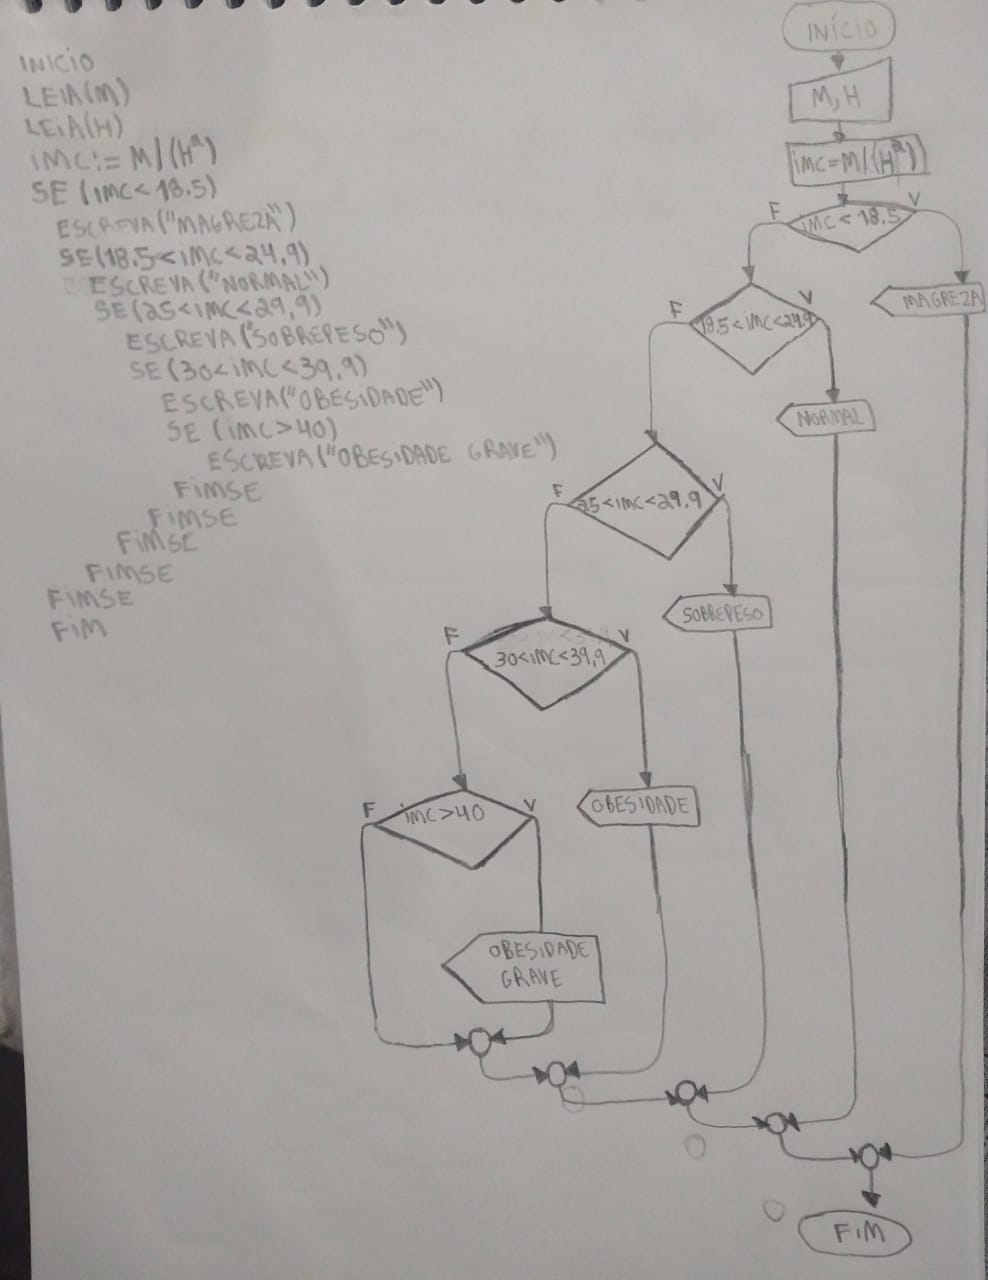 INICIO
LEIA(M)
LEIA(H)
iMC:= M/(H²)
SE (iMC<18.5)
ESCREVA("MAGREZA")
SE(18.5<iMC<24,9)
ESCREVA("NORMAL")
SE(25<iMC<29,9)
ESCREVA("SOBREPESO")
SE(30<iMC<39,9)
ESCREVA("OBESIDADE")
SE (iMC>40)
ESCREVA("OBESIDADE GRAVE")
FIMSE
FIMSE
FIMSE
FIMSE
FIMSE
FIM
INÍCIO
M,H
imc=M/(H²)
F
iMC<18.5
V
MAGREZA
F
18.5<iMC<24.9
V
NORMAL
F
25<iMC<29.9
V
SOBREPESO
F
30<iMC<39,9
V
OBESIDADE
F
iMC>40
V
OBESIDADE
GRAVE
FIM